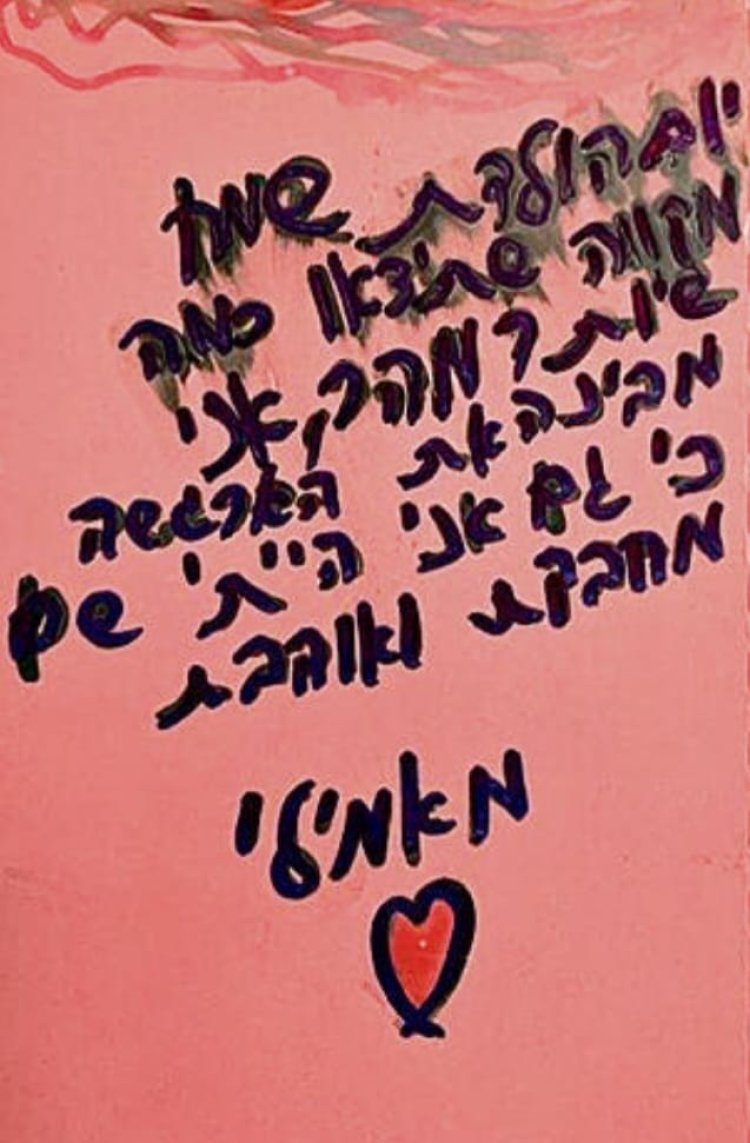 יום הולדת שמח
מקווה שתיצאו כמה
שיותר מהר, אני
מבינה את הארגשה
כי גם אני הייתי שם
מחבקת ואוהבת
מאמילי